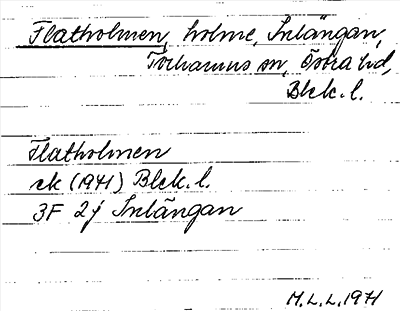 Flatholmen, holme, Inlängan,
Torhamns sn, Östra hd,
Blek. l.
Flatholmen
ek (1941) Blek. l.
3F 2j Inlängan
M.L.L. 1971